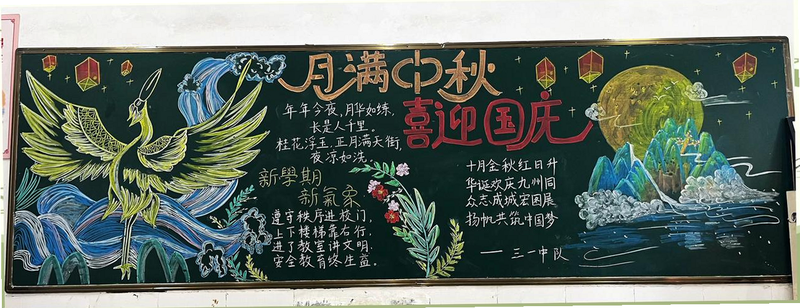 月满中秋
喜迎国庆
年年今夜,月华如练,
长是人千里。
桂花浮玉,正月满天街,
夜凉如洗。
新學期
新氣象
遵守秩序进校门,
上下楼梯靠右行,
进了教室讲文明,
安全教育终生益。
十月金秋红日升
华诞欢庆九州同
众志成城宏图展
扬帆共筑中国梦
——三一中队